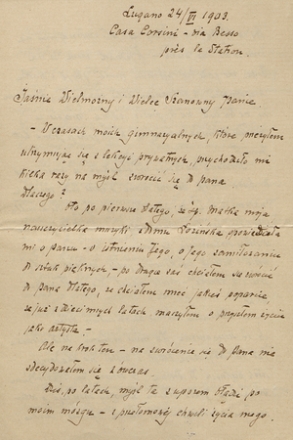 Lugano 24/VI 1903.
Casa Corsini - via Besso
près la Station.
Jaśnie Wielmożny i Wielce Szanowny Panie
- W czasach moich gimnazyalnych, które przeżyłem
utrzymując się z lekcyi prywatnych, przychodziło mi
kilka razy na myśl zwrócić się do pana
Dlaczego?
Oto po pierwsze dlatego, że śp. Matka moja
nauczycielka muzyki z domu Łozińska powiedziała
mi o panu - o istnieniu Jego, o Jego zamiłowaniu
do sztuk pięknych, - po drugie zaś chciałem się zwrócić
do pana dlatego, że chciałem mieć jakieś poparcie,
że już w dziecinnych latach marzyłem o przyszłem życiu
jako artysta -
Ale na - na zwrócenie się do Pana nie
zdecydowałem się wówczas.
Dziś, po latach, myśl ta z uporem błądzi po
moim mózgu - i przełomowej chwili życia mego.